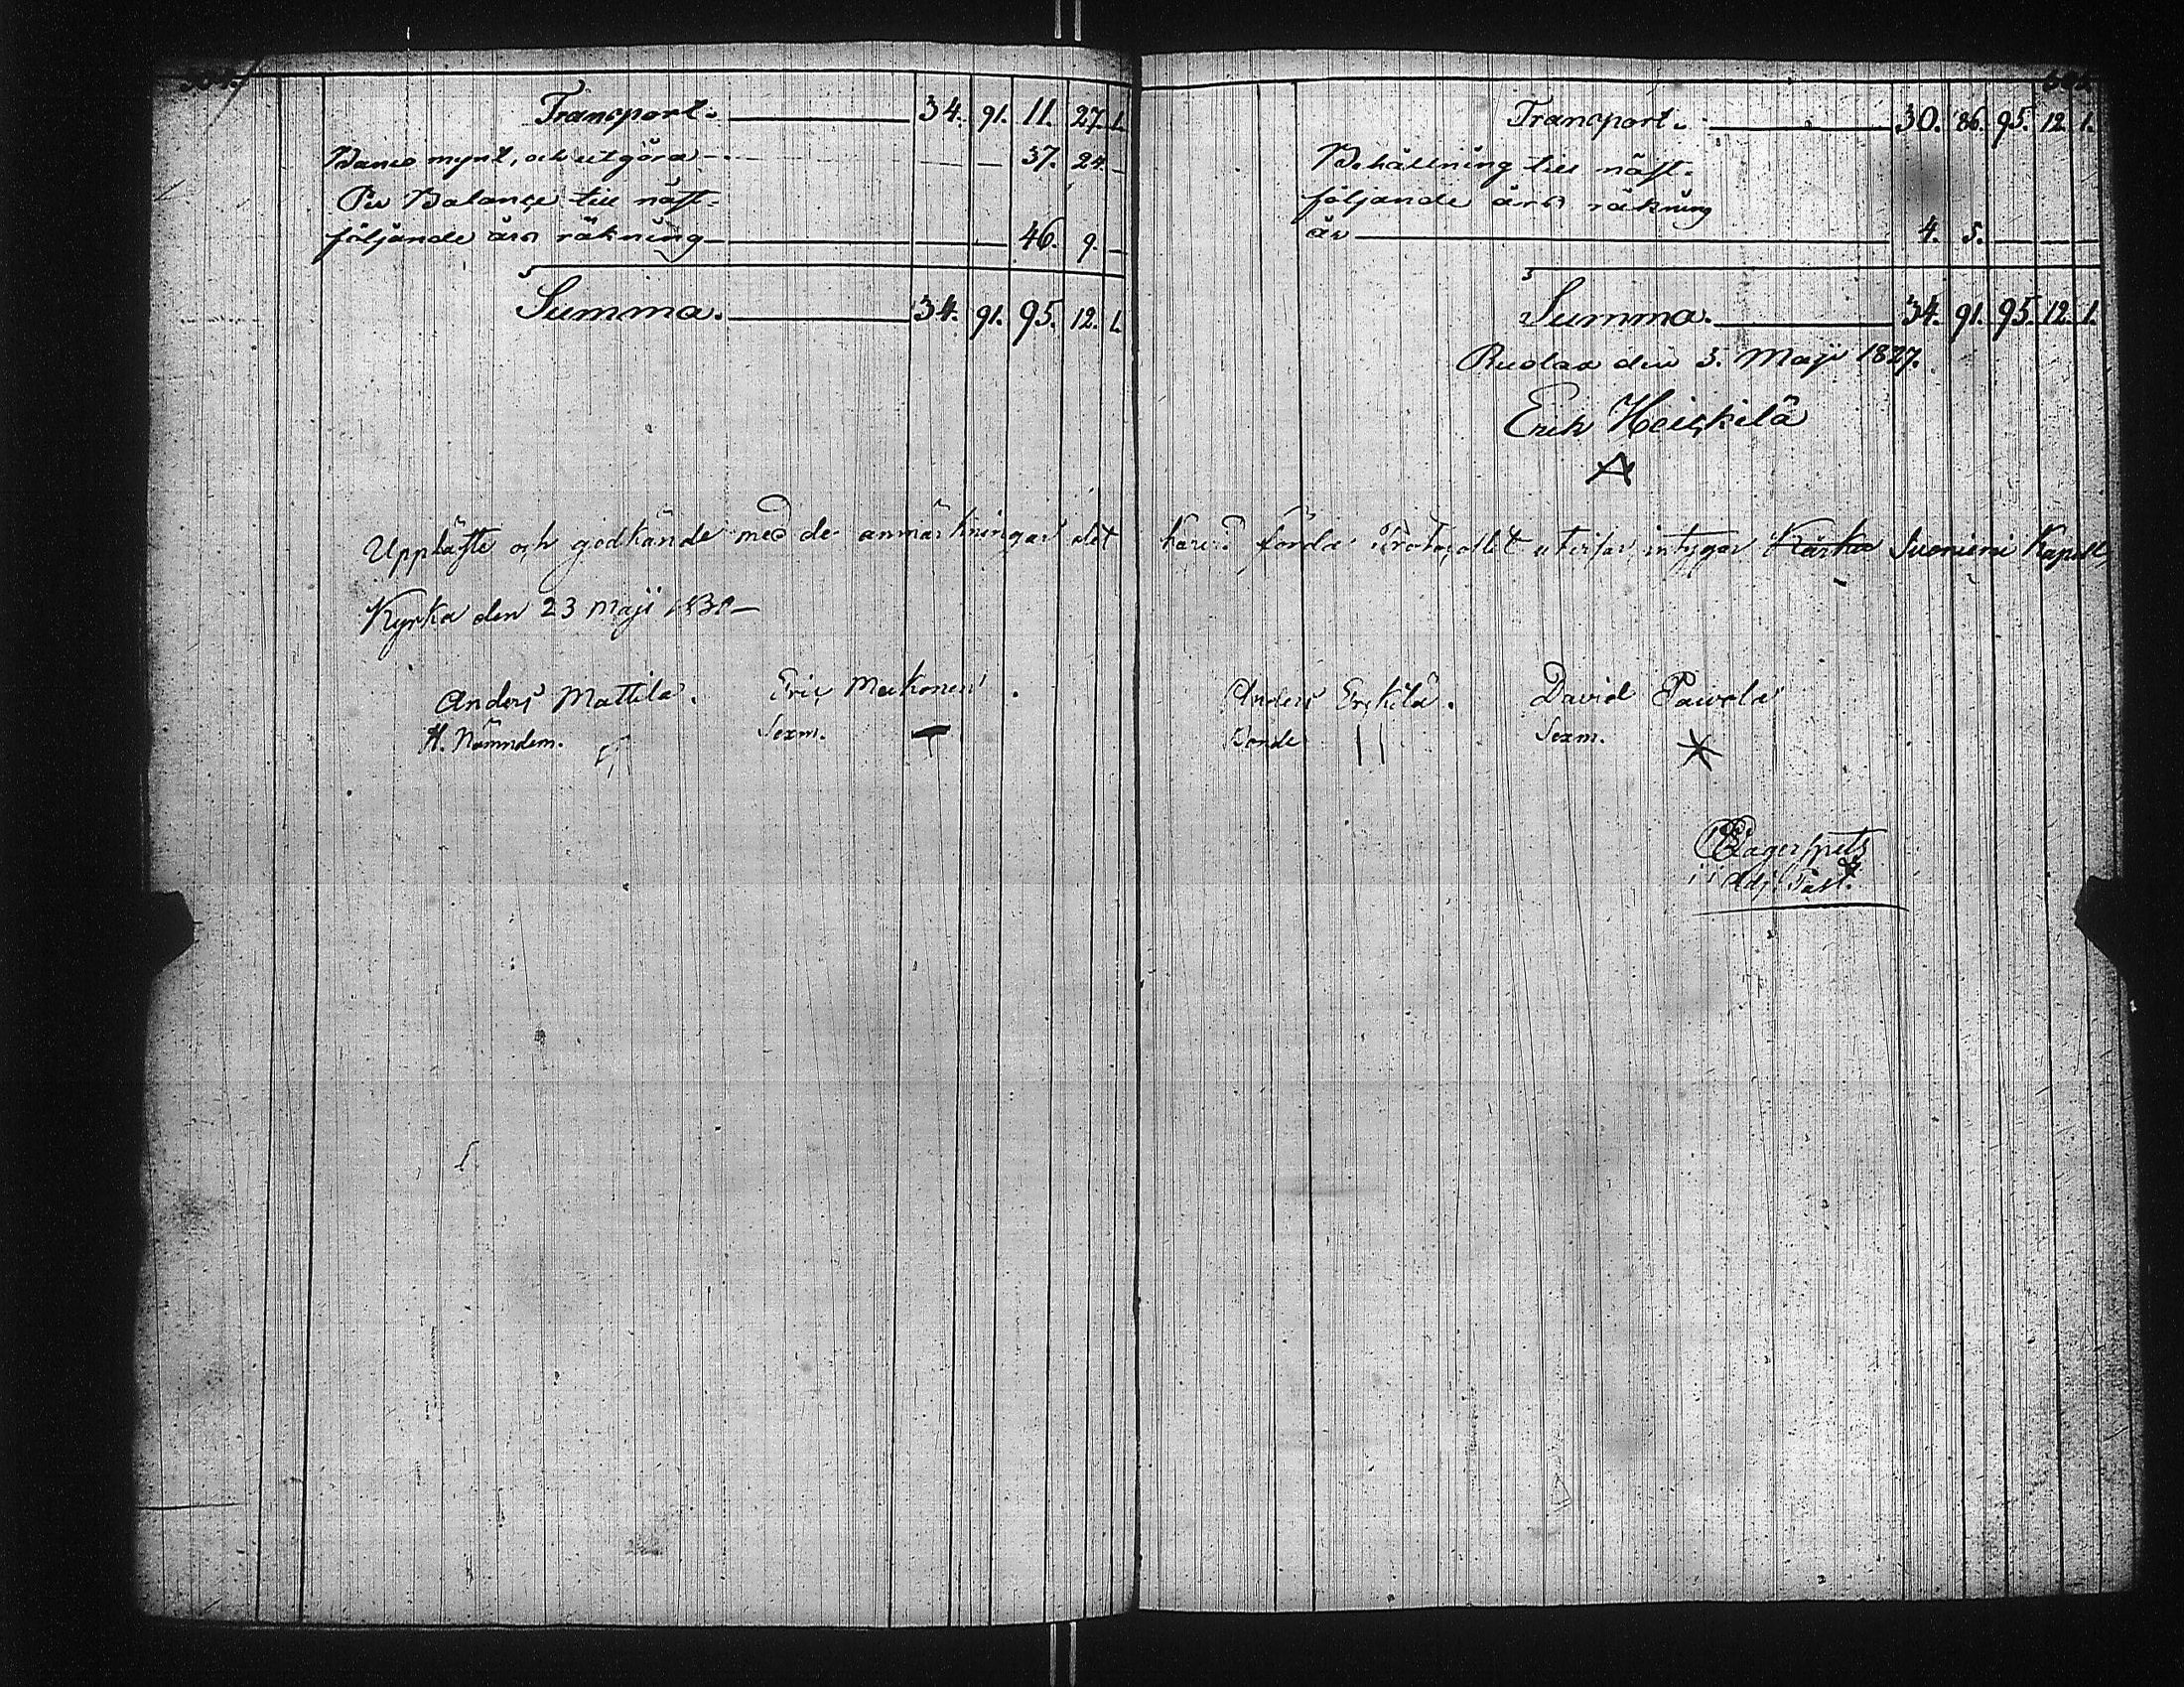 Transport. 34. 91. 11. 27. 1.
Banco mynt, och utgöra — — 37. 24. —
Per Balance till näst-
följande års räkning — — 46. 9. —
Summa. 34. 91. 95. 12. 1.
Transport. 30. 86. 95. 12. 1.
Behållning till näst-
följande års räkning
är 4. 5. — — —
Summa. 34. 91. 95. 12. 1.
den 3. Maji 1827.
Erik Heickilä
Uppläste och godkände med de anmärkningar det härvid förda Protocollet utvisar, intygar Kärko Suoniemi Kapell
Kyrka den 23 Maji
Anders Mattila. Eric
H. Nämndem. Sexm.
Anders Erkilä. David Pawola
Bonde Sexm.
Lagerspets
Adj. Past.